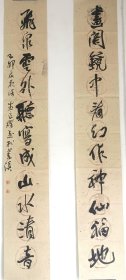 畫閣鏡中看幻作神仙福地
飛泉雲外聽寫成山水清音